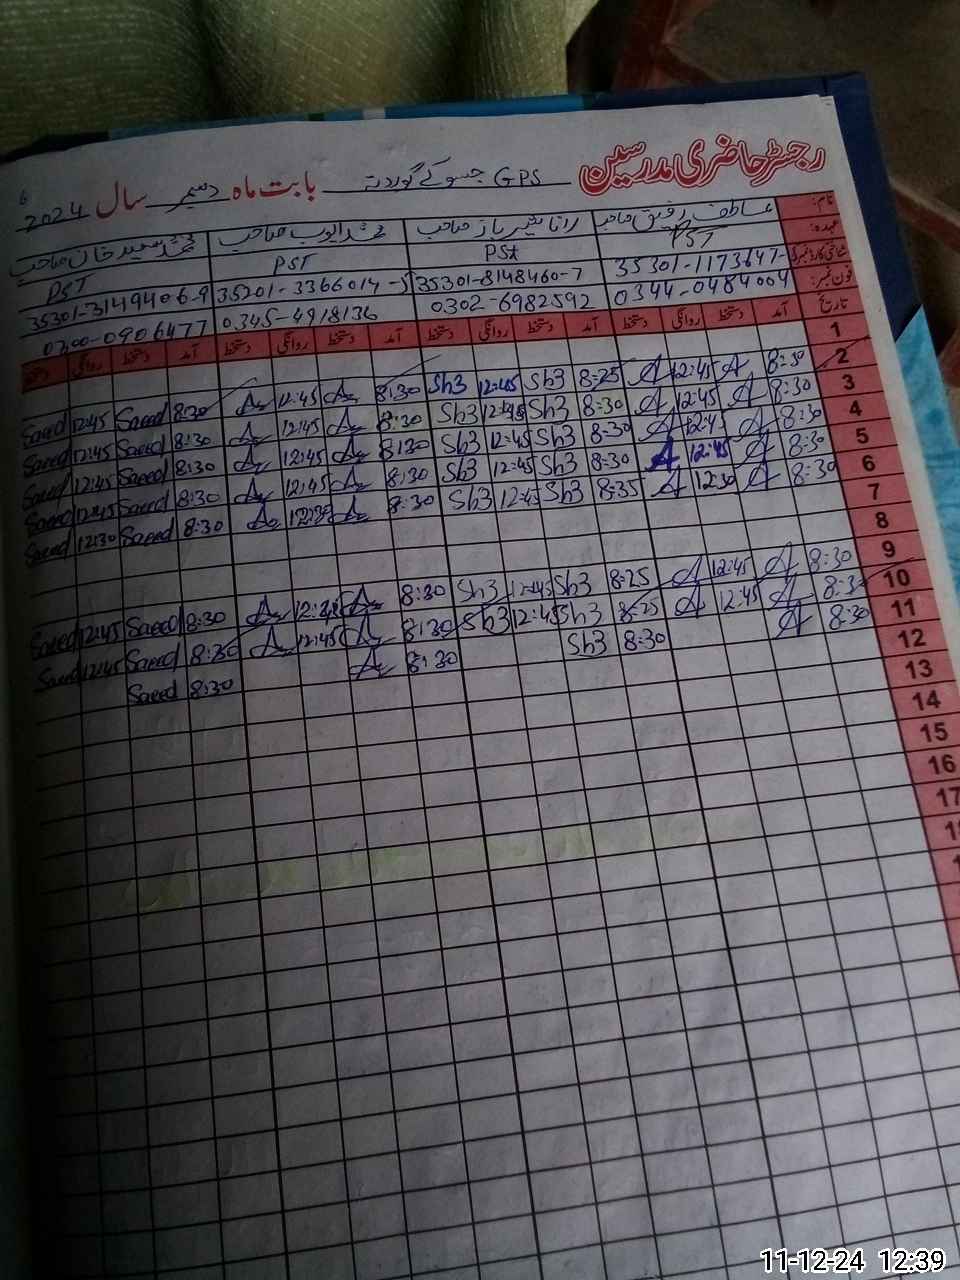 رجسٹر حاضری مدرسین GPS جسوکے گوردتہ بابت ماہ دسمبر سال 2024
6
نام: عاطف رفیق صاحب رانا شہباز صاحب محمد ایوب صاحب محمد سعید خان صاحب
عہدہ: PST PST PST PST
شناختی کارڈ نمبر: 35301-1173647- 35301-8148460-7 35201-3366014-5 35301-3149406-9
فون نمبر: 0344-0484004 0302-6982592 0345-4918136 0300-0906477
تاریخ آمد دستخط روانگی دستخط آمد دستخط روانگی دستخط آمد دستخط روانگی دستخط آمد دستخط روانگی دستخط
1
2 8:30 A 12:45 A 8:25 Sh3 12:45 Sh3 8:30 A 12:45 A 8:30 Saeed 12:45 Saeed
3 8:30 A 12:45 A 8:30 Sh3 12:45 Sh3 8:30 A 12:45 A 8:30 Saeed 12:45 Saeed
4 8:30 A 12:45 A 8:30 Sh3 12:45 Sh3 8:30 A 12:45 A 8:30 Saeed 12:45 Saeed
5 8:30 A 12:45 A 8:30 Sh3 12:45 Sh3 8:30 A 12:45 A 8:30 Saeed 12:45 Saeed
6 8:30 A 12:30 A 8:35 Sh3 12:45 Sh3 8:30 A 12:30 A 8:30 Saeed 12:30 Saeed
7
8
9 8:30 A 12:45 A 8:25 Sh3 12:45 Sh3 8:30 A 12:38 A 8:30 Saeed 12:45 Saeed
10 8:30 A 12:45 A 8:25 Sh3 12:45 Sh3 8:30 A 12:45 A 8:30 Saeed 12:45 Saeed
11 8:30 A 8:30 Sh3 8:30 A 8:30 Saeed
12
13
14
15
16
17
11-12-24 12:39